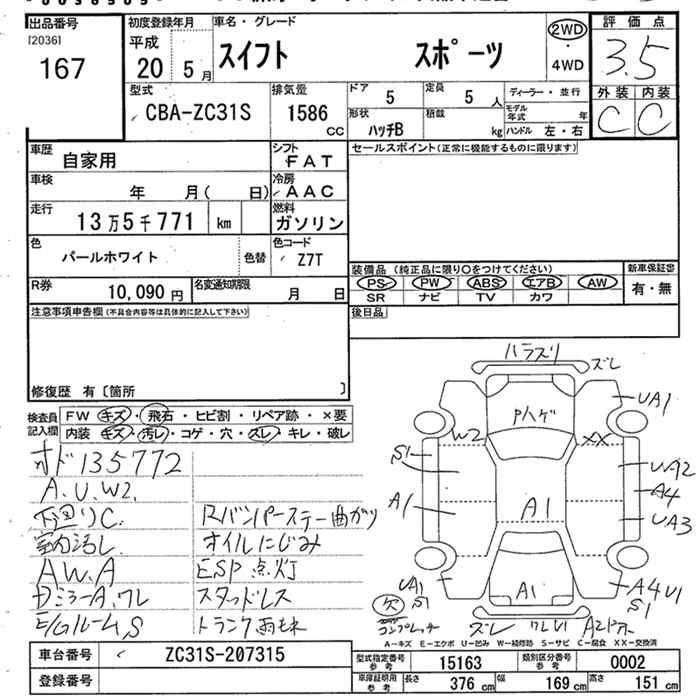 出品番号
[2036]
167
初度登録年月
平成
20 5月
車名・グレード
スイフト スポーツ
2WD
・
4WD
評価点
3.5
外装 内装
C C
型式
CBA-ZC31S
排気量
1586
CC
ドア 5
定員 5 人
形状
ハッチB
積載 kg
ディーラー・並行
モデル年式 年
ハンドル 左・右
車歴 自家用
シフト FAT
車検 年 月( 日)
冷房 AAC
走行 13万5千771 km
燃料 ガソリン
色 パールホワイト 色替
色コード Z7T
R券 10,090円
名変通知期限 月 日
セールスポイント(正常に機能するものに限ります)
装備品(純正品に限り○をつけてください)
PS PW ABS エアB AW
SR ナビ TV カワ
新車保証書
有・無
後日品
注意事項申告欄(不具合内容等は具体的に記入して下さい)
修復歴 有〔箇所 〕
検査員記入欄
FW キズ・飛石・ヒビ割・リペア跡・×要
内装 キズ・汚レ・コゲ・穴・スレ・キレ・破レ
オド135772
A.U.W2.
下回りC.
室内汚レ
AW.A
DミラーA.ワレ
E/GルームS
Rバンパーステー曲ガリ
オイルにじみ
ESP点灯
スタッドレス
トランク雨モレ
ハラスリ
ズレ
UA1
Pハゲ
W2
XX
S1
UA2
A1
A4
UA3
A1
UA1
S1
A1
A4U1
S1
欠
コンプレッサ
ズレ
ワレU1
A=キズ E=エクボ U=凹み W=補修跡 S=サビ C=腐食 XX=交換済
車台番号 ZC31S-207315
登録番号
型式指定番号 参考 15163
類別区分番号 参考 0002
車庫証明用 参考 長さ 376 cm 幅 169 cm 高さ 151 cm